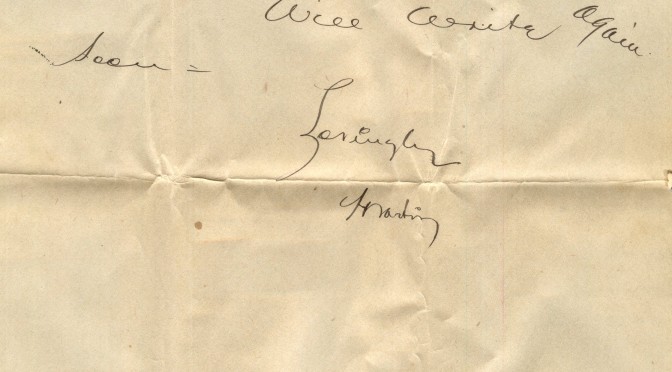 Will write again
soon =
Lovingly
Martin